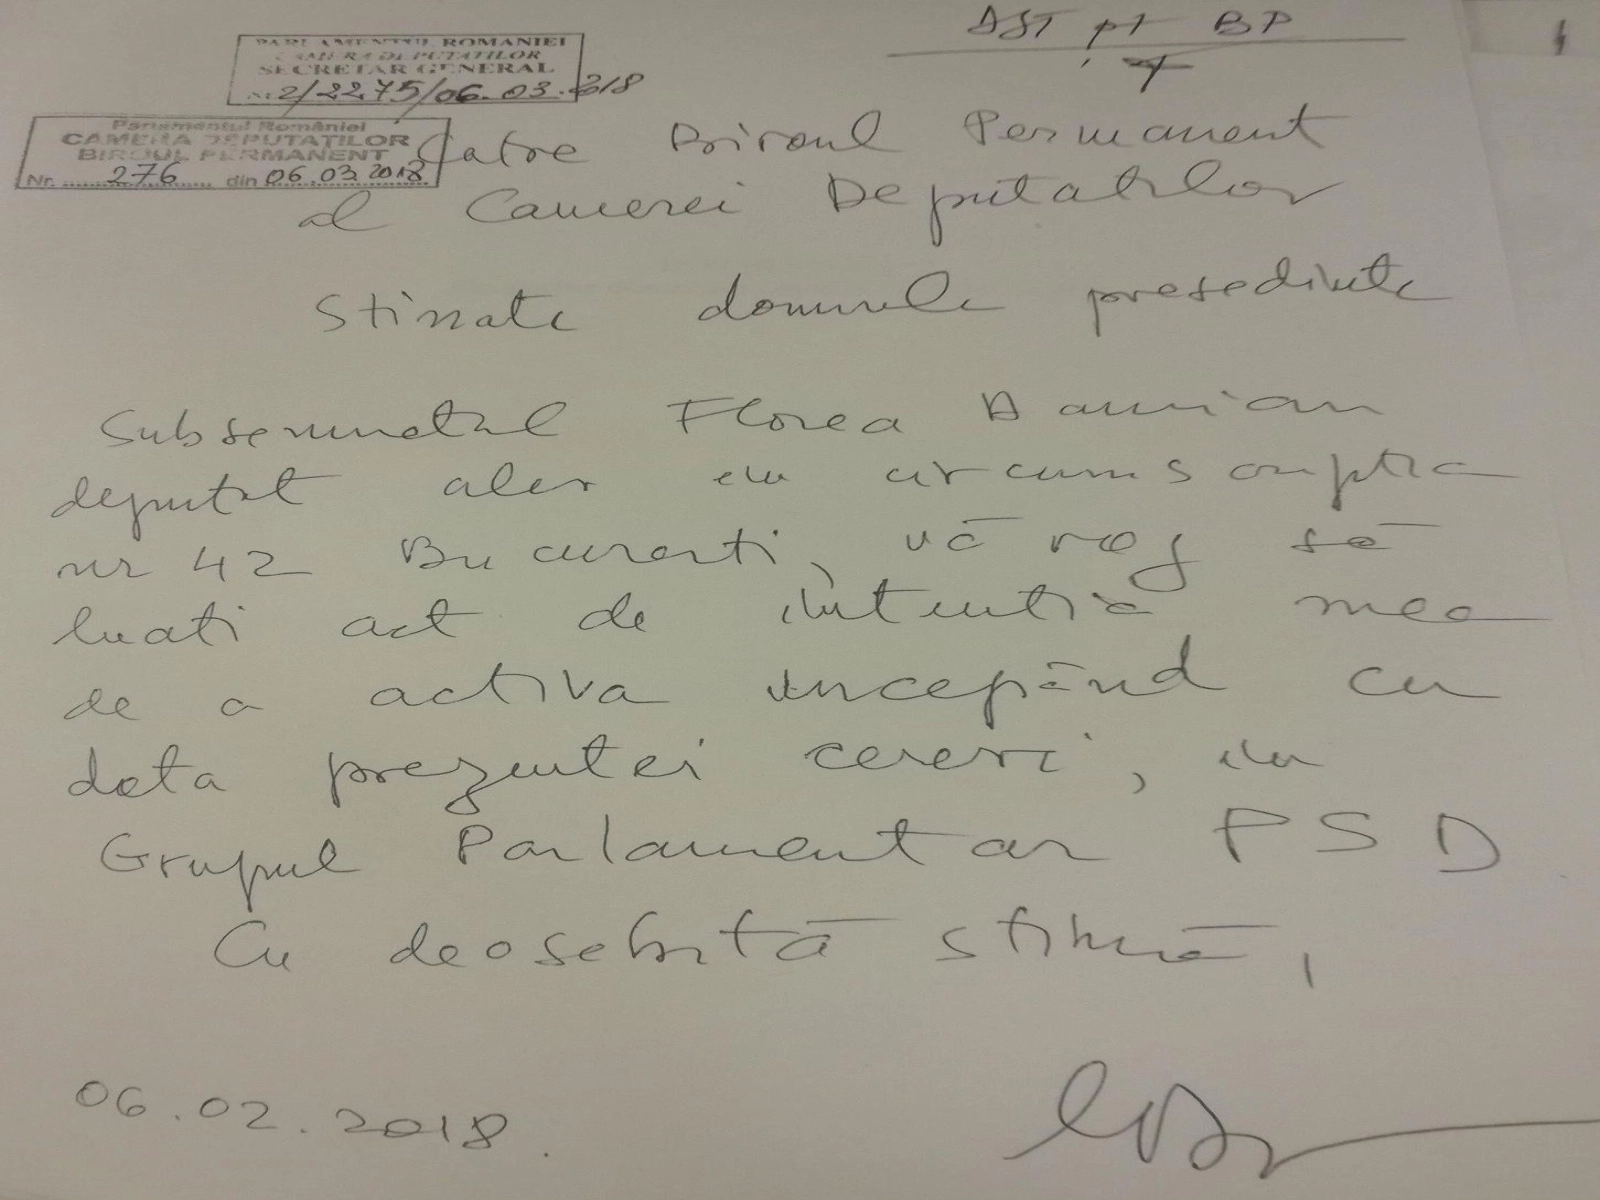 DST pt BP
PARLAMENTUL ROMANIEI
CAMERA DEPUTATILOR
SECRETAR GENERAL
Nr 2/2275/06.03.2018
Parlamentul României
CAMERA DEPUTAȚILOR
BIROUL PERMANENT
Nr. 276 din 06.03.2018
Catre Biroul Permanent
al Camerei Deputatilor
Stimate domnule presedinte
Subsemnatul Florea Damian
deputat ales in circumscriptia
nr 42 Bucuresti, vă rog să
luati act de intentia mea
de a activa incepând cu
data prezentei cereri, in
Grupul Parlamentar PSD
Cu deosebită stimă,
06.02.2018.